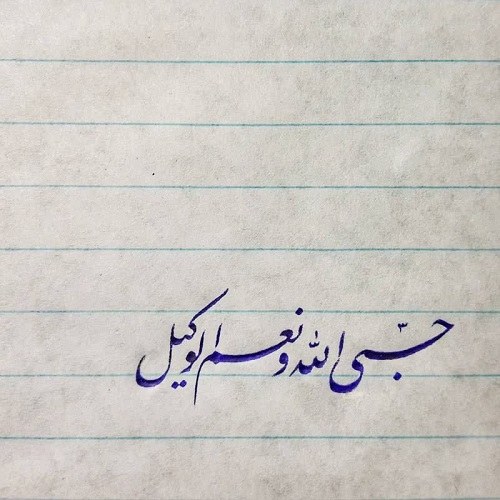 حسبی الله و نعم الوکیل